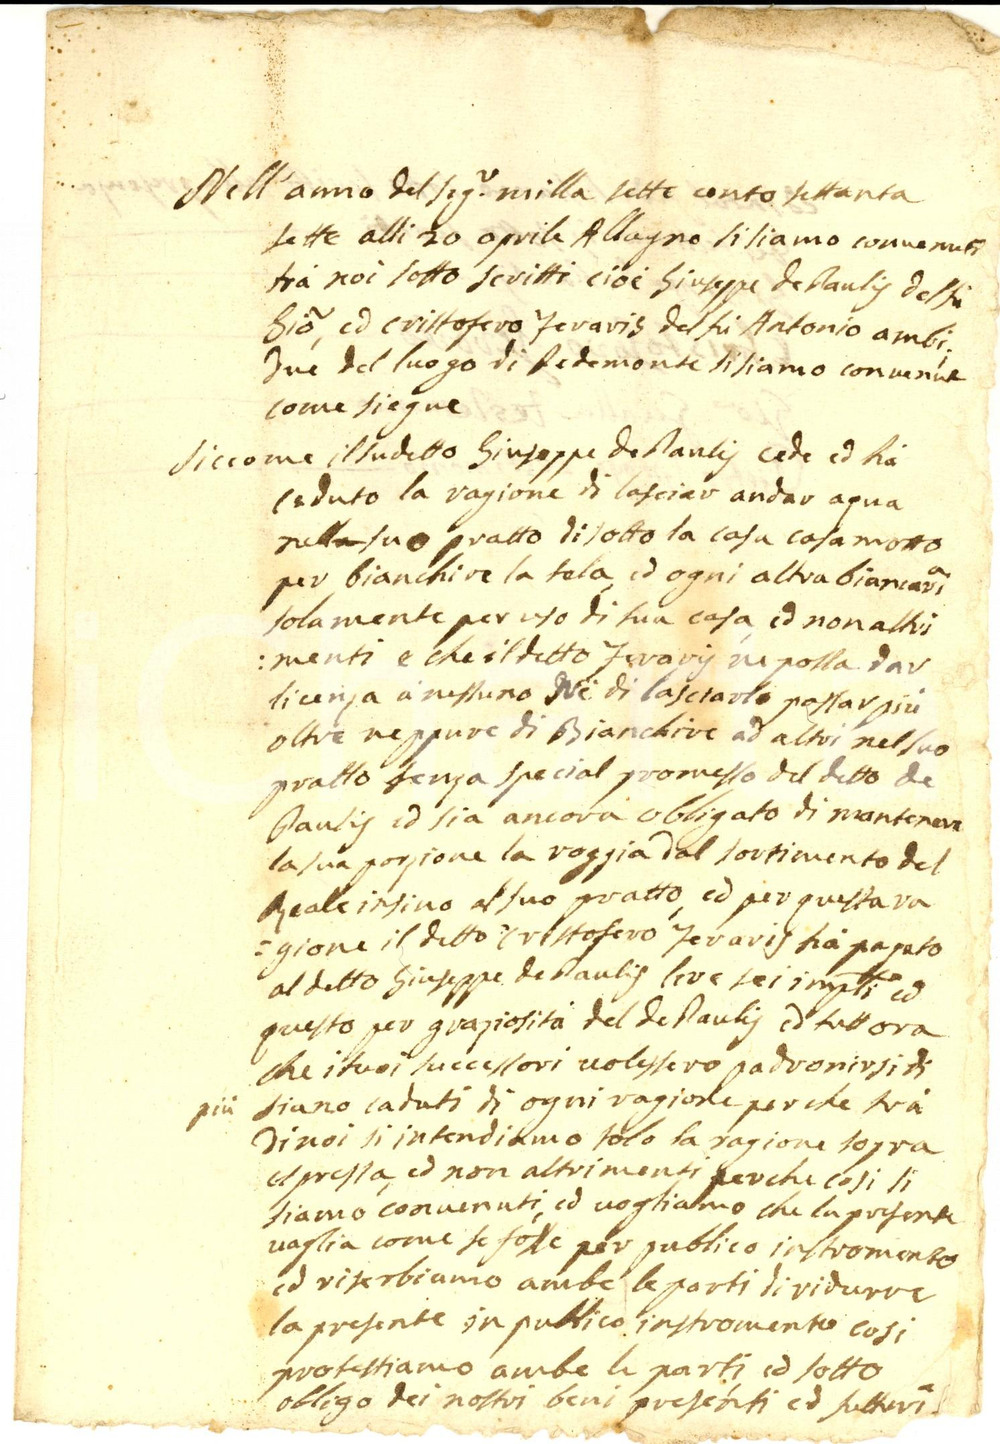 Nell'anno del Sigr. milla sette cento settanta
sette alli 20 aprile Allagno si siamo convenuti
trà noi sotto scritti cioè Giuseppe de Paulis del fu
Gio, ed Cristofero Feraris del fu Antonio ambi
due del luogo di Pedemonte si siamo convenuti
come siegue
Siccome il sudetto Giuseppe de Paulis cede ed hà
ceduto la ragione di lasciar andar aqua
nella suo pratto di sotto la casa
per bianchire la tela, ed ogni altra biancaria
solamente per uso di sua casa, ed non altri
:menti e che il detto Feraris ne possa dar
licenza à nessuno Nè di lasciarlo passar più
oltre neppure di Bianchire ad altri nel suo
pratto senza special promesso del detto de
Paulis ed sia ancora obbligato di mantenere
la sua porzione la roggia dal sortimento del
Reale insino al suo pratto, ed per questa ra
=gione il detto Cristofero Feraris hà pagato
al detto Giuseppe de Paulis lire sei ed
questo per graziosità del de Paulis ed tutt ora
che i suoi successori volessero padronirsi di
più siano caduti di ogni ragione perche trà
di noi si intendiamo solo la ragione sopra
espressa, ed non altrimenti perche così si
siamo convenuti, ed vogliamo che la presente
vaglia come se fosse per publico instromento
ed riserbiamo ambe le parti di ridurre
la presente in publico instromento così
protestiamo ambe le parti ed sotto
obligo dei nostri beni presenti ed